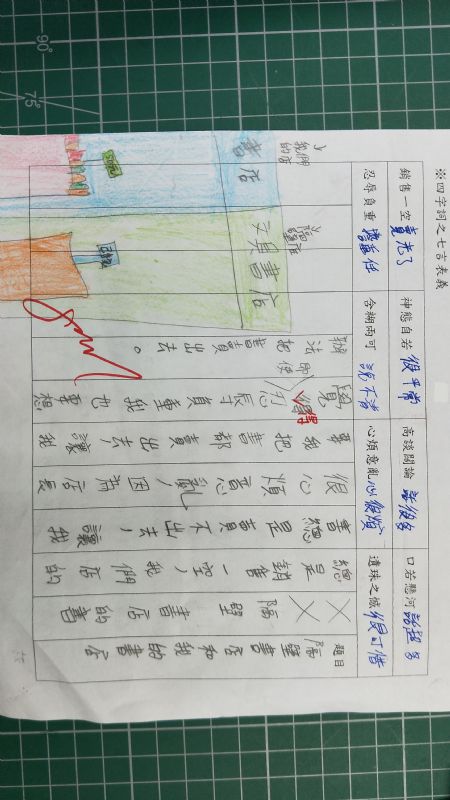 ※四字詞之七言表義
銷售一空 賣光了 神態自若 很平常 高談闊論 話很多 口若懸河 話超多
忍辱負重 擔重任 含糊兩可 說不清 心煩意亂 心很煩 遺珠之憾 很可惜
題目 隔壁書店和我的書店
隔壁書店的書
總是銷售一空，我們店的
書總是賣不出去，讓我
很心煩意亂，因為店長
要我把書都賣出去，讓我
覺得忍辱負重我也要想
得
即使
辦法把書賣出去。
隔壁店
文具書店
書店
我們的店
90°
75